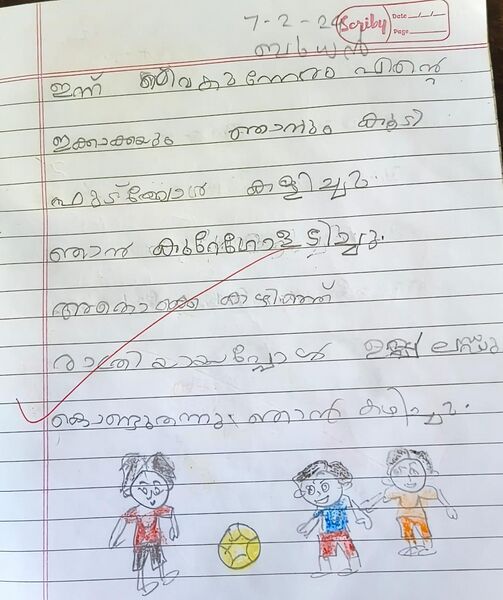 7-2-24
Scriby
Date __/__/__
Page
ബുധൻ
ഇന്ന് വൈകുന്നേരം എന്റെ
ഇക്കാക്കയും ഞാനും കൂടി
ഫുട്ബോൾ കളിച്ചു.
ഞാൻ കുറേഗോളടിച്ചു.
അതൊക്കെ കഴിഞ്ഞ്
രാത്രിയായപ്പോൾ ഉമ്മ ലസ്സു
കൊണ്ടുതന്നു. ഞാൻ കഴിച്ചു.